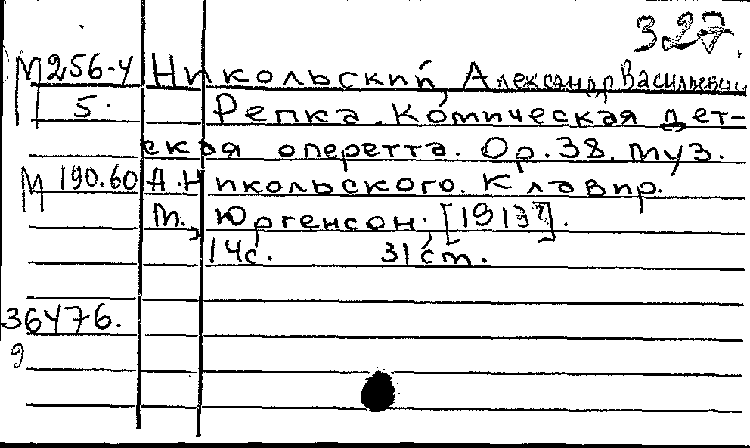 327.
М256-4 Никольский, Александр Васильевич
5. Репка. Комическая дет-
ская оперетта. Ор.38. Муз.
М190.60 А.Никольского. Клавир.
М., Юргенсон, [1913?].
14с. 31см.
36476.